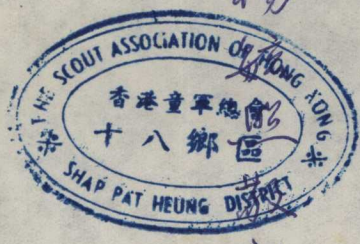 THE SCOUT ASSOCIATION OF HONG KONG
香港童軍總會
十八鄉區
SHAP PAT HEUNG DISTRICT